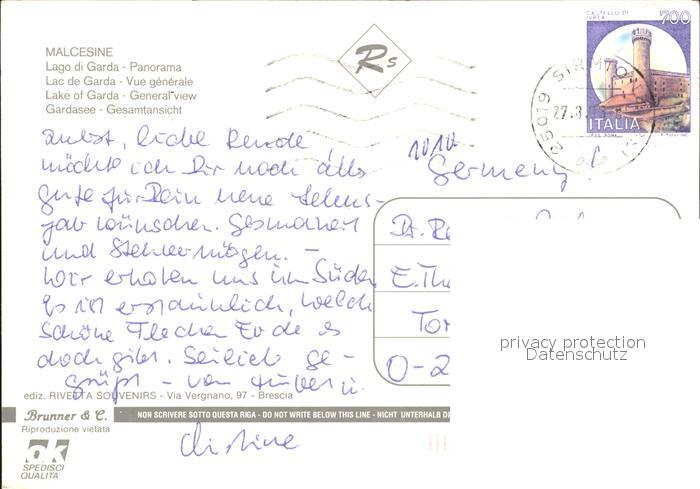 MALCESINE
Lago di Garda - Panorama
Lac de Garda - Vue générale
Lake of Garda - General view
Gardasee - Gesamtansicht
RS
CASTELLO DI IVREA
700
ITALIA
25019 SIRMIONE
27.8.
liebe Renate,
möchte ich Dir noch alles
gute für Dein neue Lebens-
jahr wünschen. Gesundheit
und Stehvermögen. -
Wir erholen uns im Süden
Es ist erstaunlich, welch
schöne Flecken Erde es
doch gibt. Sei lieb ge-
grüßt - von
Christine
Germany
Dr. Re
E. Th
Tor
O-2
privacy protection
Datenschutz
ediz. RIVETTA SOUVENIRS - Via Vergnano, 97 - Brescia
Brunner & C.
Riproduzione vietata
NON SCRIVERE SOTTO QUESTA RIGA - DO NOT WRITE BELOW THIS LINE - NICHT UNTERHALB DI
ok
SPEDISCI
QUALITA'